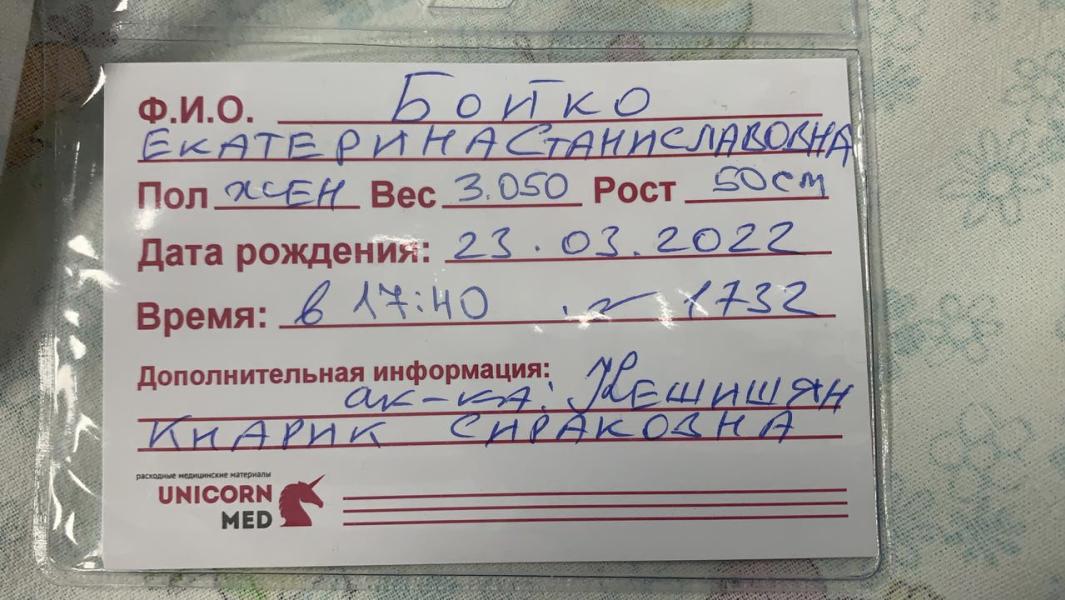 Ф.И.О. Бойко
ЕКАТЕРИНА СТАНИСЛАВОВНА
Пол ЖЕН Вес 3.050 Рост 50см
Дата рождения: 23.03.2022
Время: в 17:40 1732
Дополнительная информация:
ак-ка: КЕШИШЯН
КНАРИК СИРАКОВНА
расходные медицинские материалы
UNICORN
MED